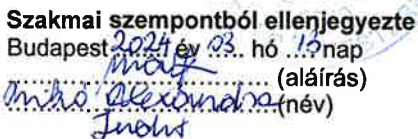 Szakmai szempontból ellenjegyezte
Budapest 2024 év 03. hó 13 nap
(aláírás)
Mikó Alexandra (név)
Judit